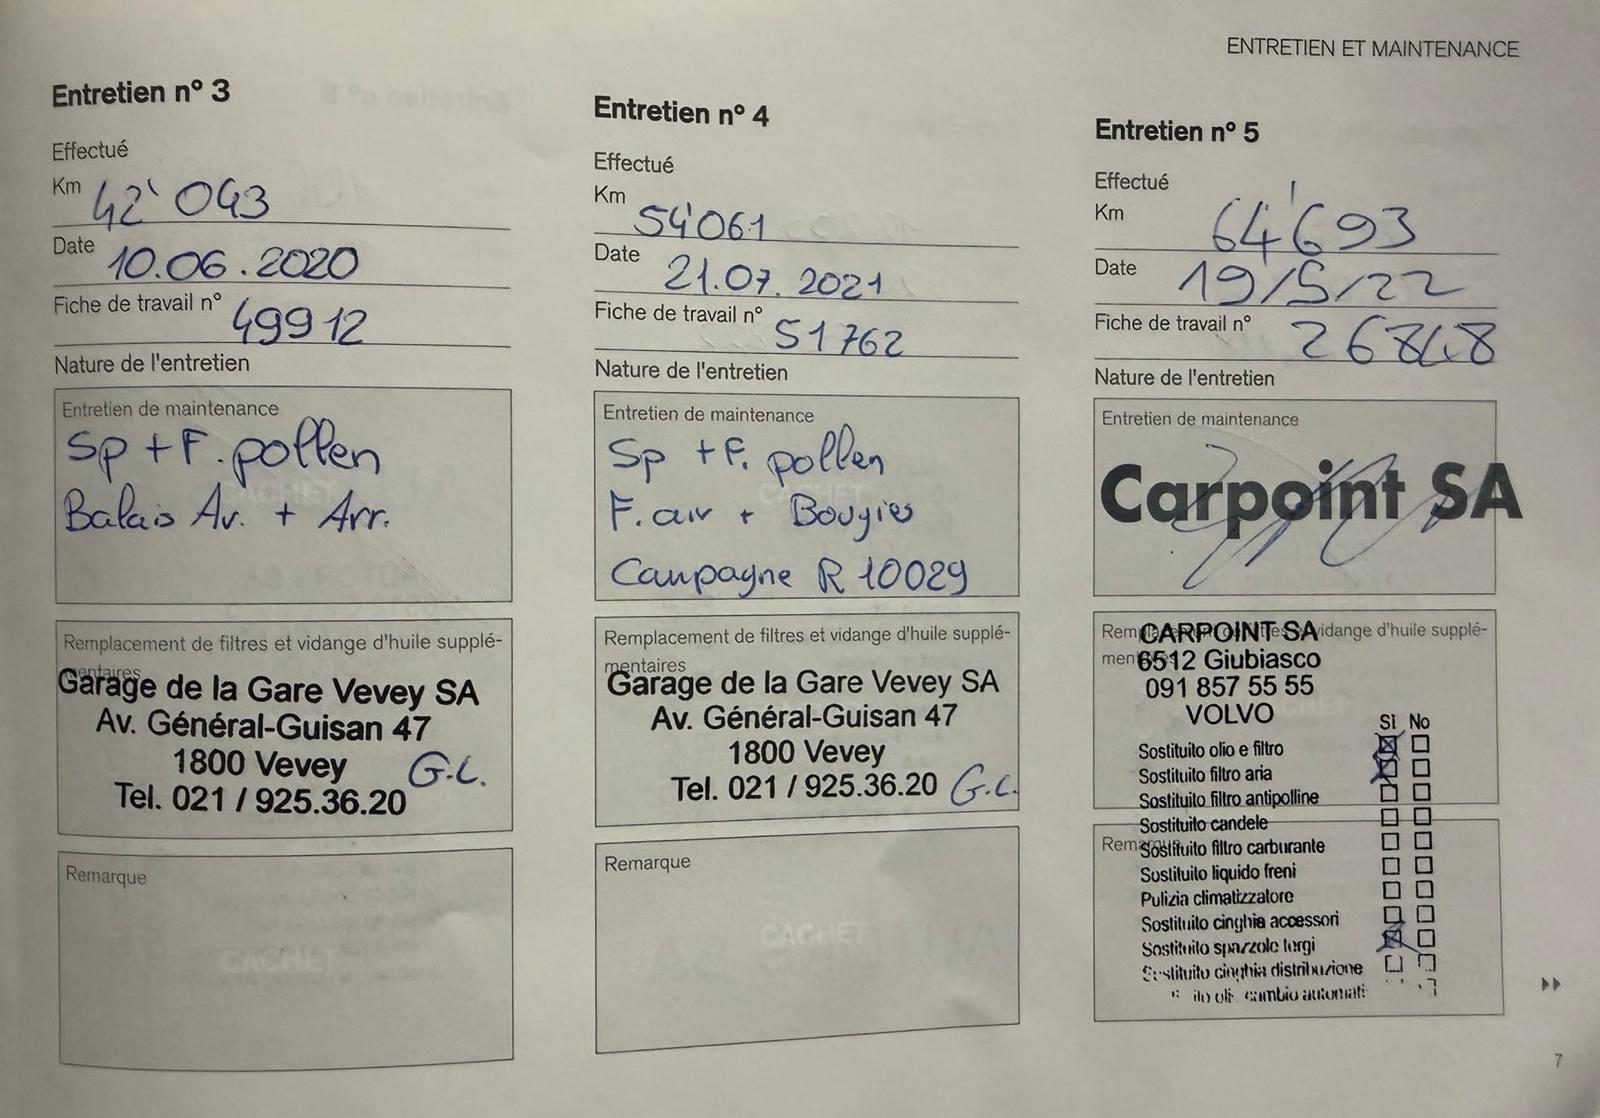 ENTRETIEN ET MAINTENANCE
Entretien nº 3
Effectué
Km 42'043
Date 10.06.2020
Fiche de travail nº 49912
Nature de l'entretien
Entretien de maintenance
Sp + F. pollen
Balais Av. + Arr.
Remplacement de filtres et vidange d'huile supplé-
mentaires
Garage de la Gare Vevey SA
Av. Général-Guisan 47
1800 Vevey
G.C.
Tel. 021 / 925.36.20
Remarque
Entretien nº 4
Effectué
Km 54'061
Date 21.07.2021
Fiche de travail nº 51762
Nature de l'entretien
Entretien de maintenance
Sp + F. pollen
F. air + Bougies
Campagne R 10029
Remplacement de filtres et vidange d'huile supplé-
mentaires
Garage de la Gare Vevey SA
Av. Général-Guisan 47
1800 Vevey
Tel. 021 / 925.36.20 G.C.
Remarque
Entretien nº 5
Effectué
Km 64'693
Date 19/5/22
Fiche de travail nº 26848
Nature de l'entretien
Entretien de maintenance
Carpoint SA
vidange d'huile supplé-
CARPOINT SA
6512 Giubiasco
091 857 55 55
VOLVO
SI No
Sostituito olio e filtro
Sostituito filtro aria
Sostituito filtro antipolline
Sostituito candele
Sostituito filtro carburante
Sostituito liquido freni
Pulizia climatizzatore
Sostituito cinghia accessori
Sostituito spazzole tergi
Sostituito cinghia distribuzione
cambio
7